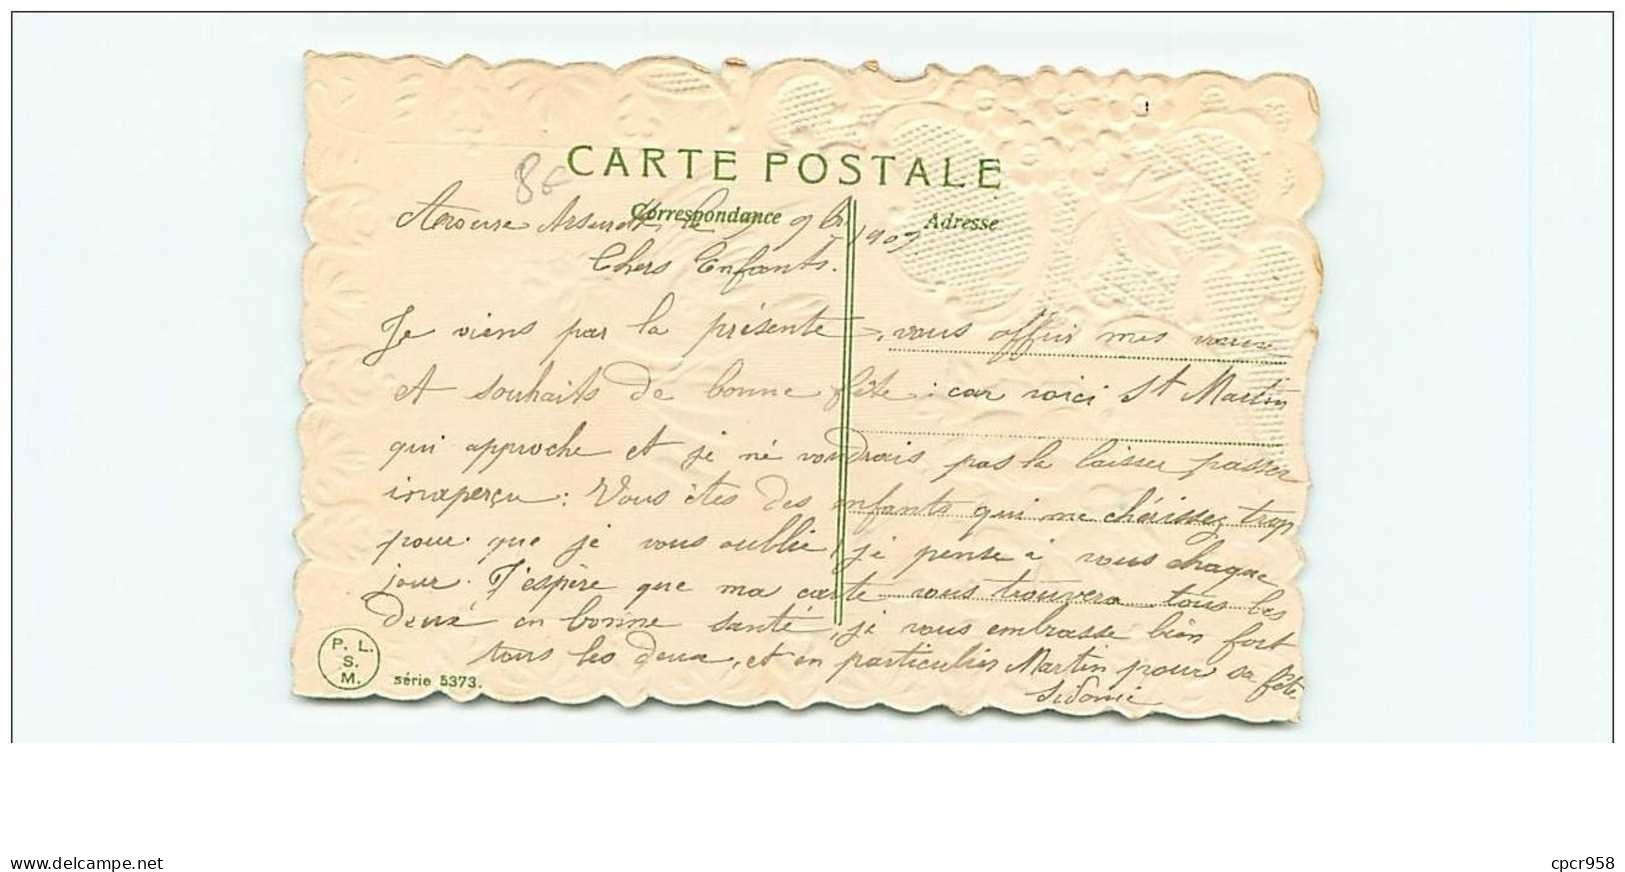 CARTE POSTALE
8€
Correspondance
Adresse
le 9 9bre 1909
Chers Enfants.
Je viens par la présente, vous offrir mes vœux
et souhaits de bonne fête : car voici St Martin
qui approche et je né voudrais pas la laisser passer
inaperçu : Vous êtes des enfants qui me chérissez trop
pour que je vous oublie, je pense à vous chaque
jour. J'espère que ma carte vous trouvera tous les
deux en bonne santé, je vous embrasse bien fort
tous les deux, et en particulier Martin pour sa fête.
Sidonie
P. L.
S.
M.
série 5373.
www.delcampe.net
cpcr958